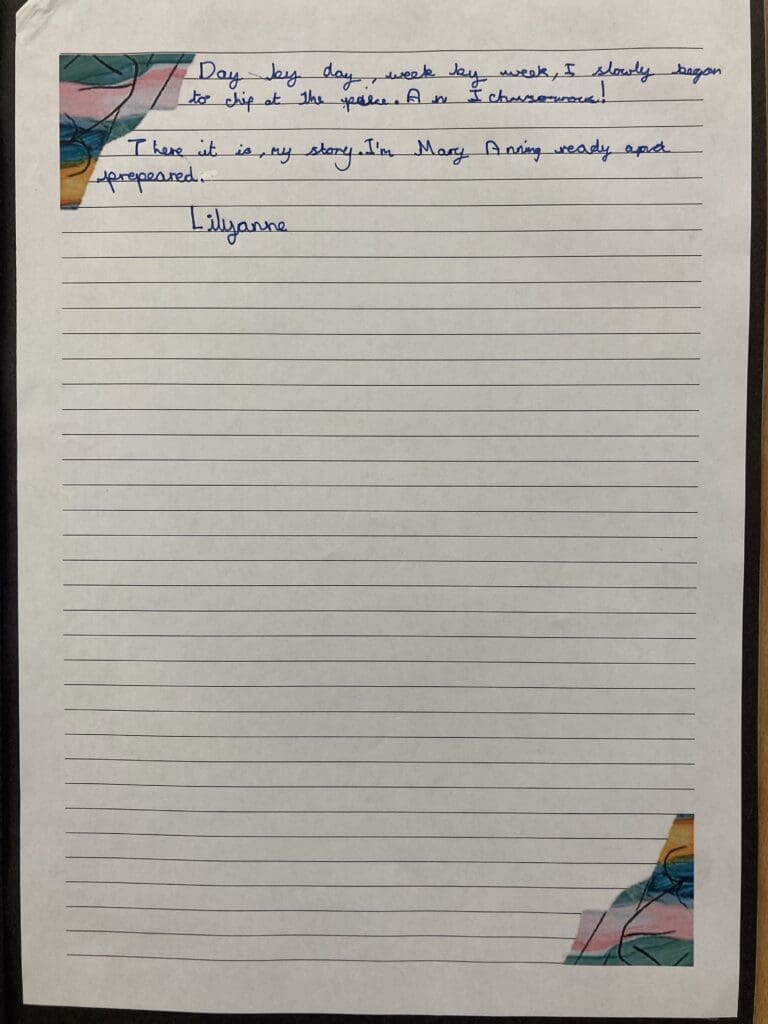 Day by day, week by week, I slowly began
to chip at the peice. A n Ichusorous!
There it is, my story. I'm Mary Anning ready and
prepeared.
Lilyanne